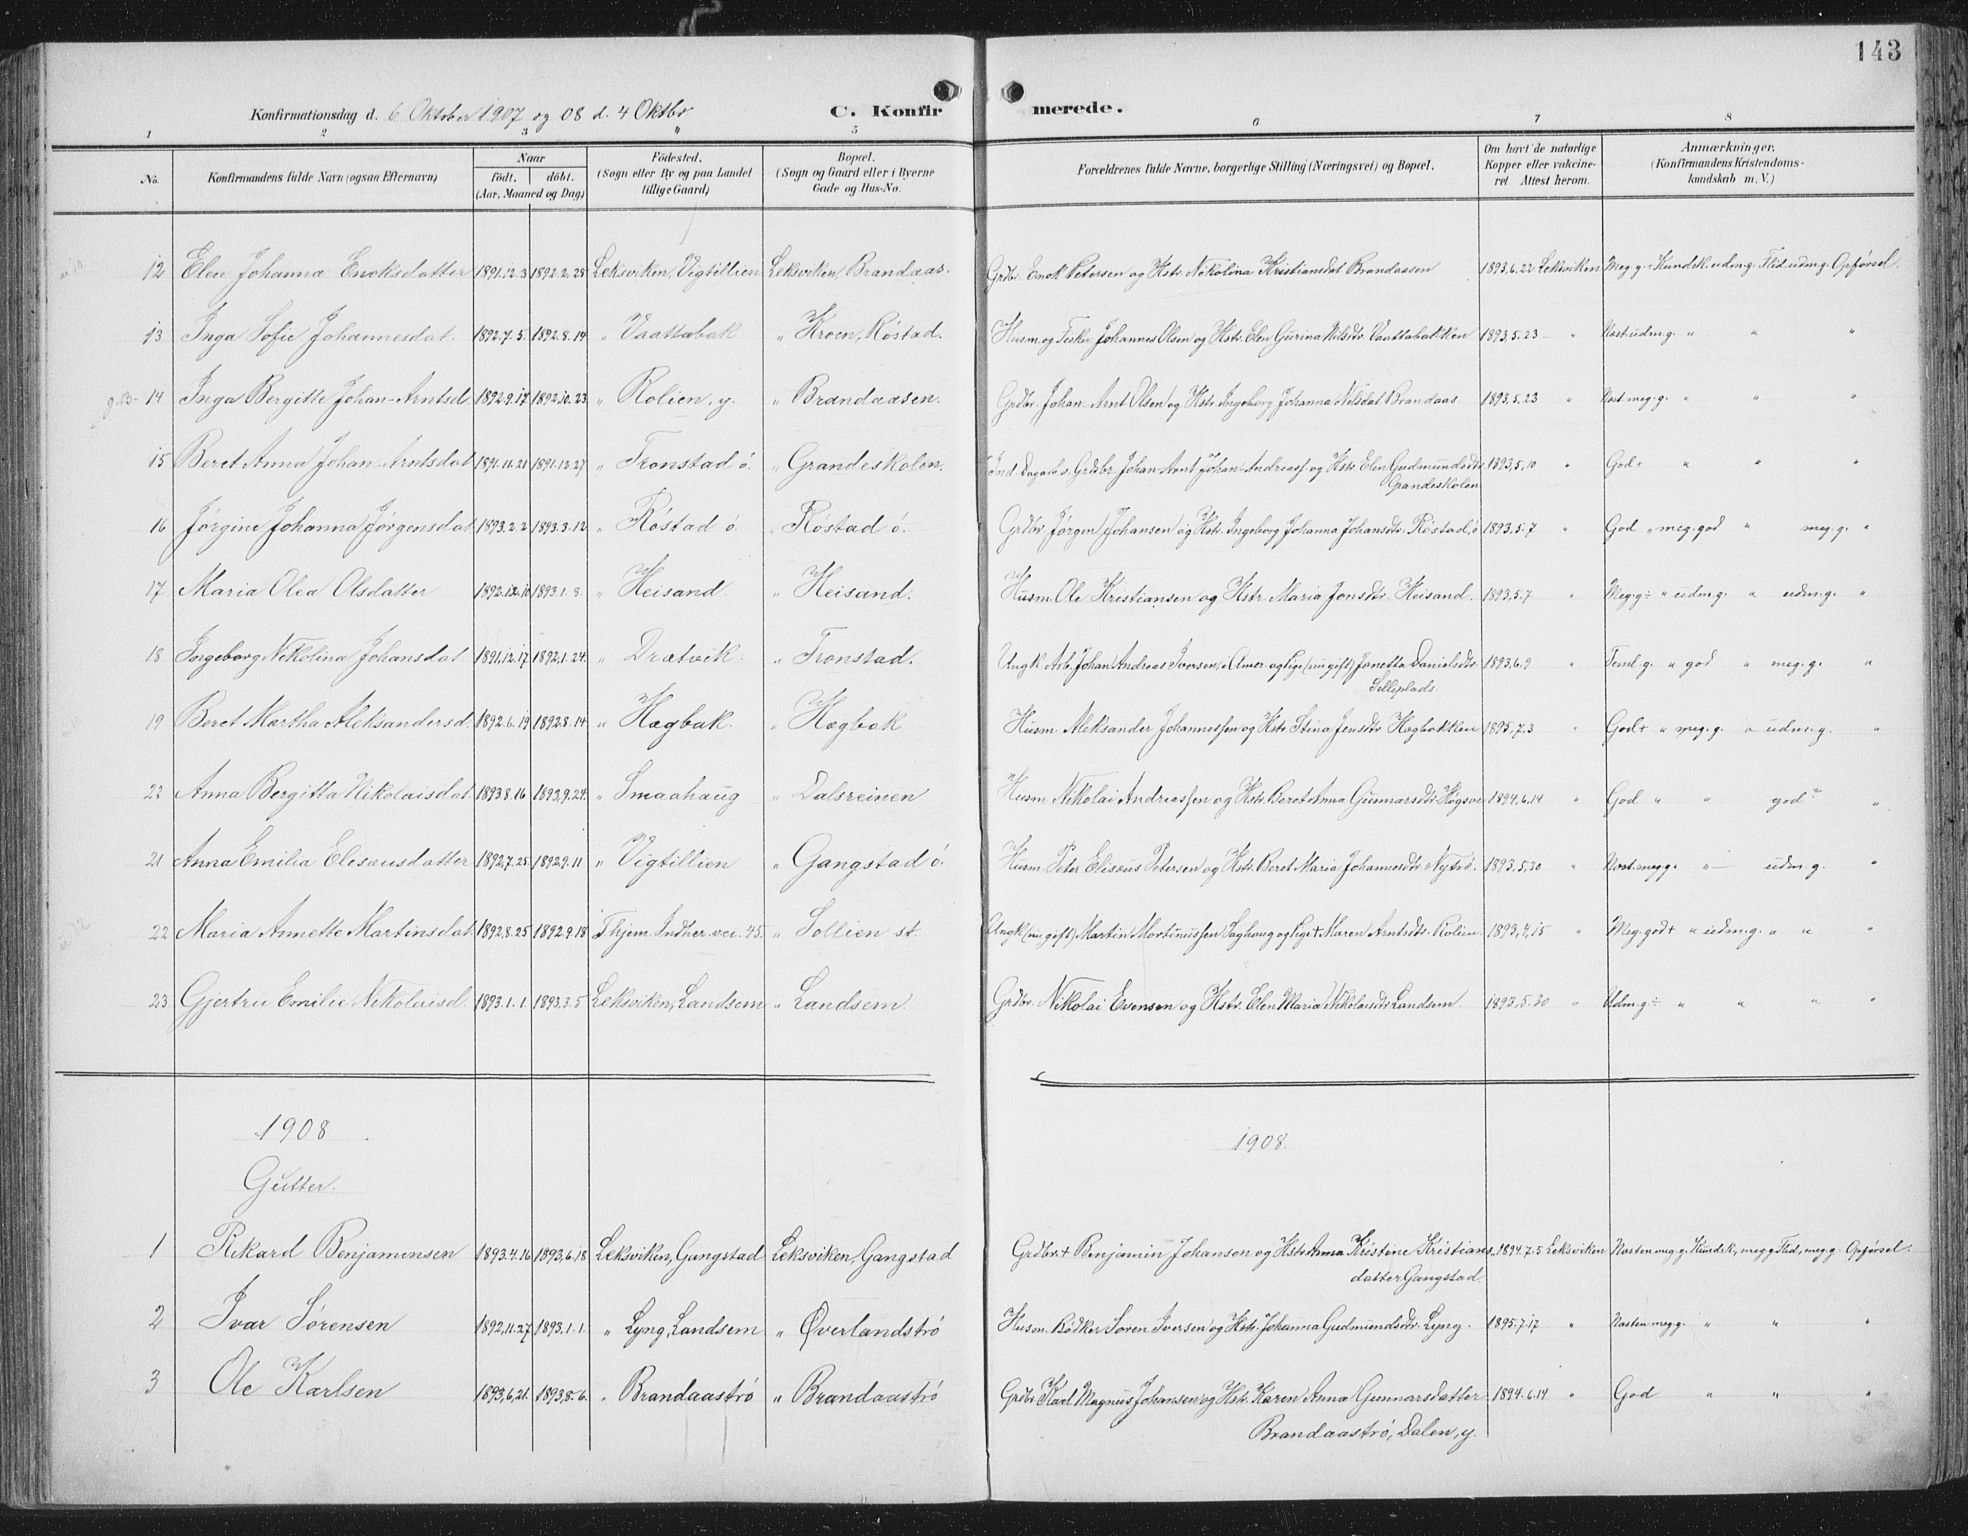 143
Konfirmationsdag d. 6 Oktober 1907 og 08 d. 4 Oktbr. C. Konfirmerede.
1 2 3 " 5 6 7 8
No. Konfirmandens fulde Navn (ogsaa Efternavn) Naar födt. döbt. (Aar, Maaned og Dag) Födested. (Sogn eller By og paa Landet tillige Gaard) Bopæl. (Sogn og Gaard eller i Byerne Gade og Hus-No. Forældrenes fulde Navne, borgerlige Stilling (Næringsvei) og Bopæl. Om havt de naturlige Kopper eller vakcineret. Attest herom. Anmærkninger. (Konfirmandens Kristendomskundskab m. V.)
12 Elen Johanna Enoksdatter 1891.12.3 1892.2.28 Leksviken, Vigtillien Leksviken, Brandaas. Grdbr. Enok Petersen og Hstr. Nikolina Kristiansdat Brandaasen 1893.6.22 Leksviken Meg. g. Kundsk. udm. g. Flid. udm. g. Opførsel.
13 Inga Sofie Johannesdat. 1892.7.5. 1892.8.14 " Vaattabak " Kroen, Röstad. Husm. og Fisker Johannes Olsen og Hstr. Elen Gurina Nilsdtr. Vaattabakken 1893.5.23 " Næst. udm. g. " " "
14 Inga Bergitte Johan-Arntsd 1892.9.17 1892.10.23 " Rolien, y. " Brandaasen. Grdbr. Johan-Arnt Olsen og Hstr. Ingeborg Johanna Nilsdat Brandaas 1893.5.23 " Næst. meg. g. " " "
15 Beret Anna Johan-Arntsdat 1891.11.21 1891.12.27 " Tronstad ö. " Grandeskolen. Ind. Dagarb. s. Grdbr. Johan-Arnt Johan-Andreass. og Hstr. Elen Gudmundsdtr. 1893.5.10 " God+ " " "
Grandeskolen
16 Jørgine Johanna Jørgensdat 1893.2.2 1893.3.12 " Röstad ö. " Röstad ö. Grdbr. Jørgen Johansen og Hstr. Ingeborg Johanna Johansdtr. Röstad, ö 1893.5.7 " God " meg. god " meg. g. "
17 Maria Olea Olsdatter 1892.12.10 1893.1.8. " Heisand. " Heisand. Husm. Ole Kristiansen og Hstr. Maria Jonsdtr. Heisand. 1893.5.7 " Meg. g÷ " udm. g. " udm. g. "
18 Ingeborg Nikolina Johansdat. 1891.12.17 1892.1.24. " Drætvik. " Tronstad. Ungk. Arb. Johan Andreas Iversen, i Amer. og Pige (nu gift) Jonetta Danielsdtr. 1893.6.9 " Teml. g. " god " meg. g. "
Selleplads.
19 Beret Martha Aleksandersd 1892.6.19 1892.8.14 " Hægbak. " Hægbak Husm. Aleksander Johannessen og Hstr. Stina Jensdtr Hægbakken 1895.7.3 " God+ " meg. g. " udm. g. "
22 Anna Bergitta Nikolaisdat 1893.8.16 1893.9.24. " Smaahaug " Dalsreinen Husm. Nikolai Andreassen og Hstr. Beret Anna Gunnarsdtr. 1894.6.14 " God " " god "
21 Anna Emilia Elisæusdatter 1892.7.25 1892.9.11 " Vigtillien " Gangstad ö. Husm. Peter Elisæus Petersen og Hstr. Beret Maria Johannesdtr. Nytrö. 1893.5.30 " Næst. meg g. " udm. g. "
22 Maria Annette Martinsdat 1892.8.25 1892.9.18 Thjem. Indhervei. 45. " Sollien st. Ungk. (nu gift) Martin Martinussen Saghaug og Pige+ Maren Arntsdtr. Rolien 1893.4.15 " Meg. god+ " udm. g. " " "
23 Gjertru Emilie Nikolaisd 1893.1.1. 1893.3.5 Leksviken, Landsem " Landsem. Grdbr. Nikolai Evensen og Hstr. Elen Maria Nikolaisdtr. Landsem. 1893.5.30 " Udm. g÷ " " " "
1908 1908
Gutter.
1 Rikard Benjaminsen 1893.4.16 1893.6.18 Leksviken, Gangstad Leksviken, Gangstad Grdbr.+ Benjamin Johanson og Hstr. Anna Kristine Kristians- 1894.7.5 Leksviken Næsten meg. g. Kundsk., meg g. Flid, meg. g. Opførsel.
datter Gangstad.
2 Ivar Sørensen 1892.11.27 1893.1.1. " Lyng, Landsem " Øverlandströ Husm. Bödker Soren Iversen og Hstr. Johanna Gudmundsdtr. Lyng. 1895.7.17 " Næsten meg g. " " "
3 Ole Karlsen 1893.6.21. 1893.8.6. " Brandaaströ " Brandaaströ Grdbr Karl Magnus Johansen og Hstr. Karen Anna Gunnarsdatter 1894.6.14 " God " " "
Brandaaströ, Dalen, y.